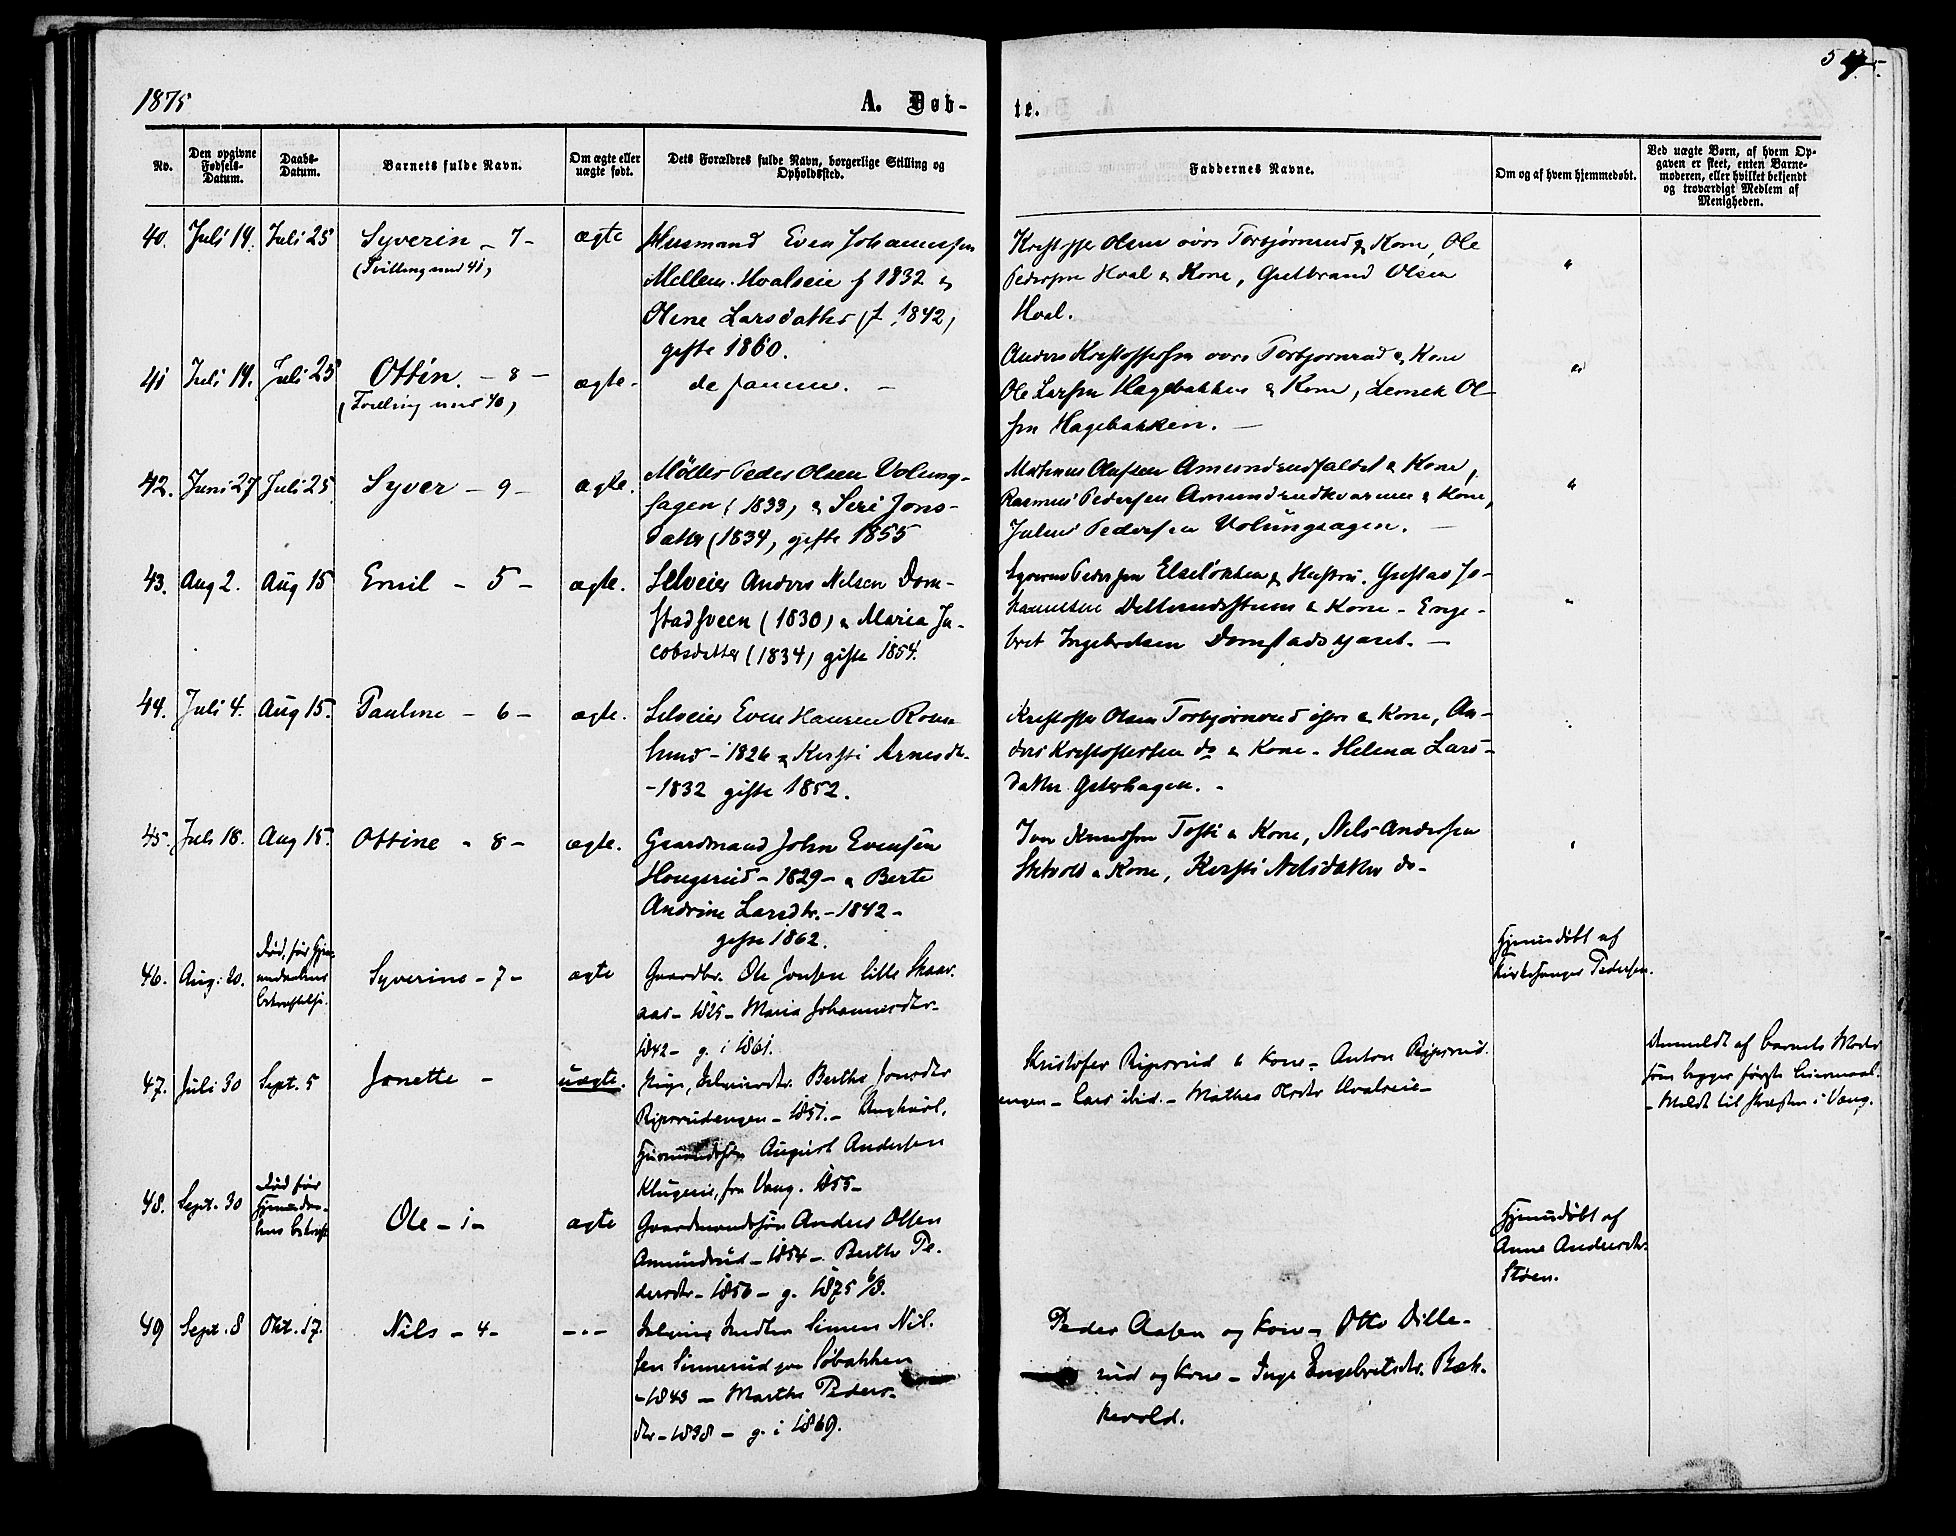 1875
A. Døb-
te.
No.
Den opgivne Fødsels-Datum.
Daabs-Datum.
Barnets fulde Navn.
Om ægte eller uægte født.
Dets Forældres fulde Navn, borgerlige Stilling og Opholdssted.
Faddernes Navne.
Om og af hvem hjemmedøbt.
Ved uægte Børn, af hvem Op-
gaven er skeet, enten Barne-
moderen, eller hvilket bekjendt
og troværdigt Medlem af
Menigheden.
40. Juli 14. Juli 25 Syverin - 7 - ægte Husmand Even Johannesen
(Tvilling med 41)
Mellem-Hvalseie f 1832 &
Olene Larsdatter (f. 1842)
gifte 1860.
Olsen øvre Torbjørnrud & Kone, Ole
Pedersen Hval & Kone, Gulbrand Olsen
Hval.
41 Juli 14. Juli 25 Ottin. - 8 - ægte - de samme. -
(Tvilling med 40)
Anders Kristoffersen øvre Torbjørnrud & Kone
Ole Larsen Hagebakken & Kone, Ol-
sen Hagebakken. -
42. Juni 27 Juli 25 Syver - 9 - ægte. Møller Peder Olsen Volung-
sagen (1833) & Siri Jons-
datter (1834) gifte 1855
Olufsen & Kone,
Rasmus Pedersen Amundrudkvernen & Kone,
Julius Pedersen Volungsagen. -
43. Aug 2. Aug 15 Emil - 5 - ægte. Selveier Anders Nilsen Dom-
stadsveen (1830) & Maria Ja-
cobsdatter (1834) gifte 1854.
Pedersen Elseløkken & Hustru. Gustav Jo-
hannesen & Kone - Enge-
bret Ingebretsen -
44. Juli 4. Aug 15. Pauline - 6 - ægte. Selveier Even Hansen
- 1826 & Kersti Arnesdtr.
- 1832 gifte 1852.
Kristoffer Olsen Torbjørnrud øvre & Kone, An-
ders Kristoffersen do & Kone - Helena Lars-
datter -
45. Juli 18. Aug 15. Ottine - 8 - ægte. Gaardmand John Evensen
Hougerud - 1829 - & Berte
Andrine Larsdtr. - 1842 -
gifte 1862.
Knudsen Tosti & Kone, Nils Andersen
& Kone, Kersti Nilsdatter do -
46. Aug: 20. Død, før Hjem-
medaabens
bekræftelse.
Syverine - 7 - ægte Gaardbr. Ole Jonsen lille Skaar-
aas - 1825 - Maria Johannesdtr.
1842 - g. i 1861.
Hjemmedøbt af
Kirkesanger Pedersen.
47. Juli 30 Sept. 5 Jonette - uægte. Pige, Berthe Jonsdtr
Riperrudengen - 1851. - Ungkarl,
August Andersen
fra Vang. 1855 -
Kristofer Riperrud & Kone - Anton Riperrud-
engen - Lars ibid. - Mathea
Anmeldt af barnets Moder
som begger første Leiermaal.
- Meldt til Præsten i Vang.
48. Sept. 30 Død før
Hjemmedaa-
bens bekræft.
Ole - 1 - ægte Gaardmandssøn Anders Olsen
Amundrud - 1854 - Berthe Pe-
dersdtr - 1856 - g. 1875 6/8.
Hjemmedøbt af
Anne Andersdtr.
Støen.
49 Sept. 8 Okt. 17. Nils - 4 - -"- Simen Nil-
sen Søbakken
- 1843 - Marthe Peders-
dtr - 1838 - g. i 1869.
Peder Aasen og Kone - Otto Dille-
rud og Kone - Inge Engebretsdtr. Bæk-
kevold.